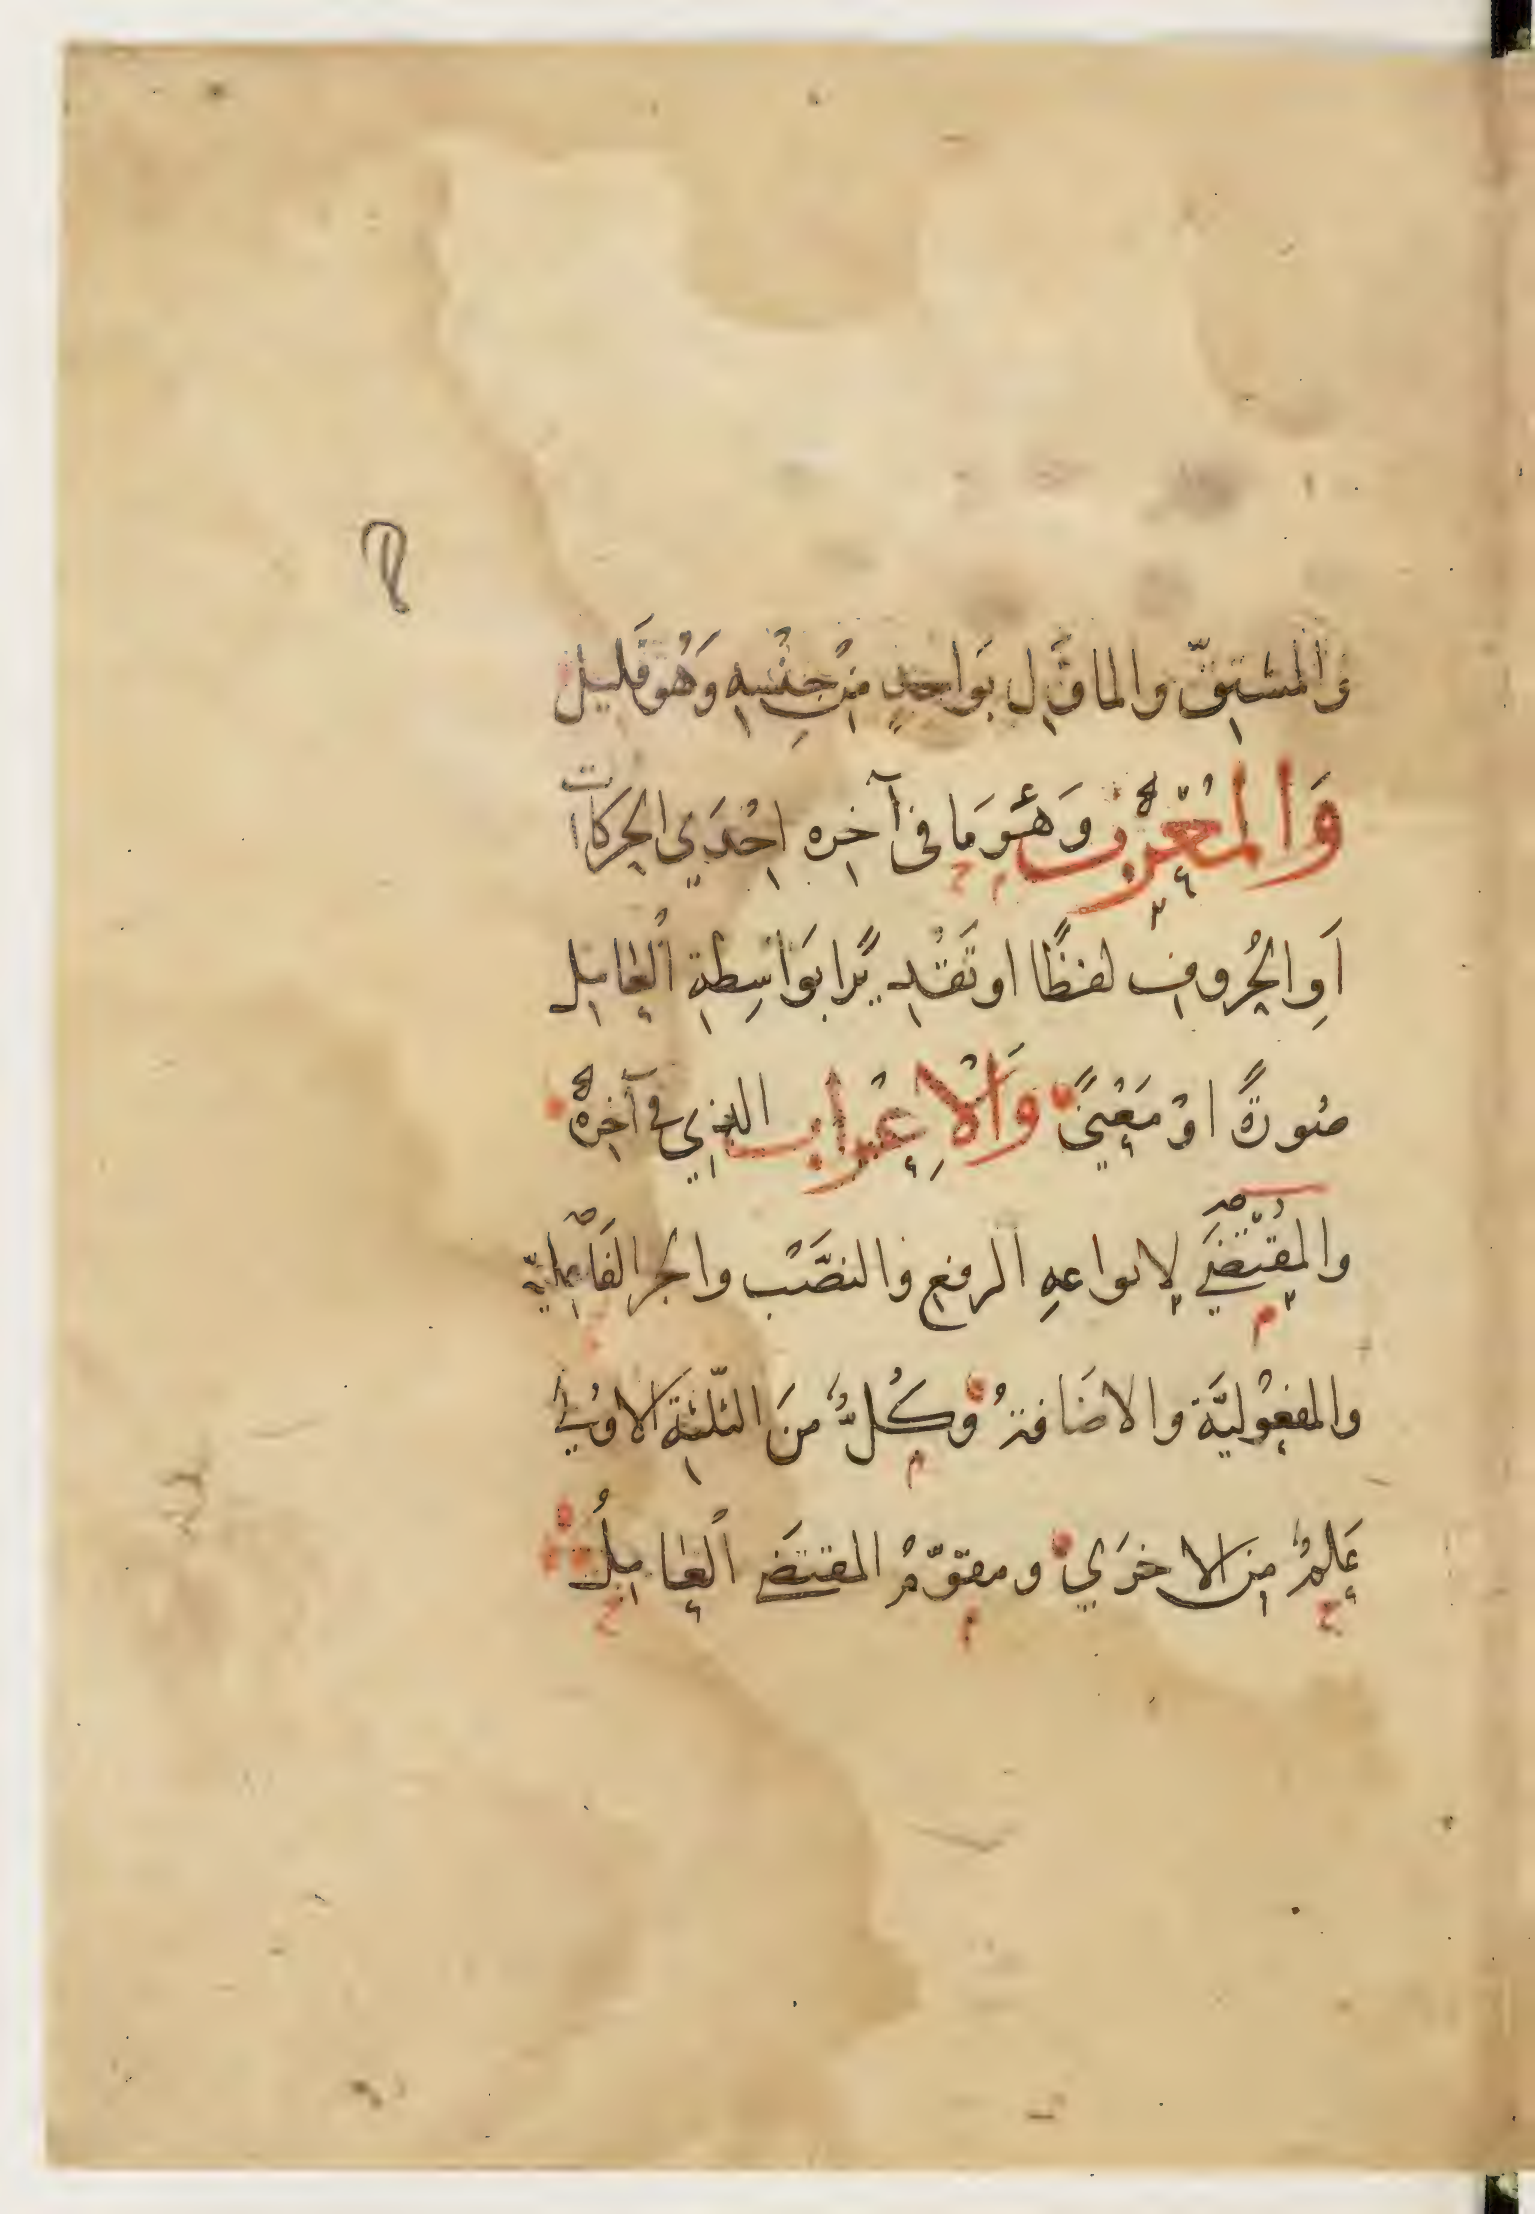 وَالمشتقّ والماوّل بوَاحدٍ مِنْ جِنْسِهِ وَهُوَ قَلِيل
وَالمُعْرَبُ وَهُوَ مَا فى آخره احْدَي الحركات
اَوِ الحُروف لفظًا او تَقْديرًا بوَاسِطةِ الْعامِل
صُورةً اوْ مَعْنيً وَالْاِعْراب الذي في آخرهٖ
والمُقْتَضَي لانواعهِ الرفع والنصَّب والجر الفَاعِليّة
والمفعُوْليَّة والاضَافة وكُلٌّ منَ الثلثة الاوُلي
عَلَمٌ من الاخرَي ومقوّمُ المقتضَي الْعامِلُ